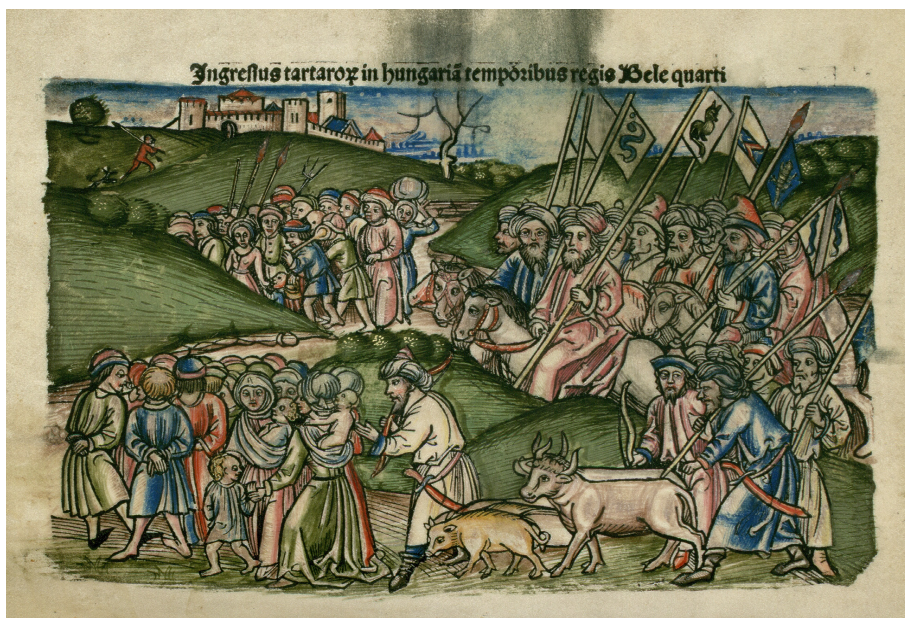 Ingressus tartaroꝝ in hungariā temporibus regis Bele quarti